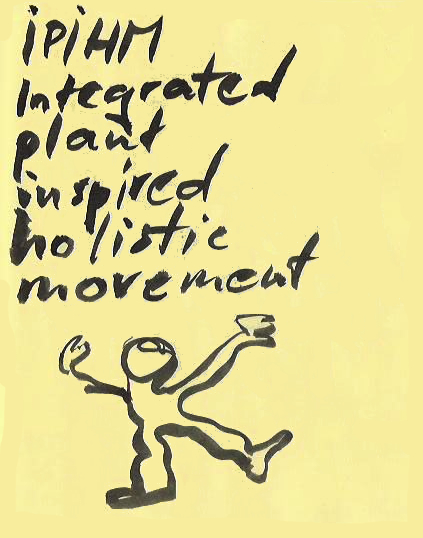 iPiHM
integrated
plant
inspired
holistic
movement